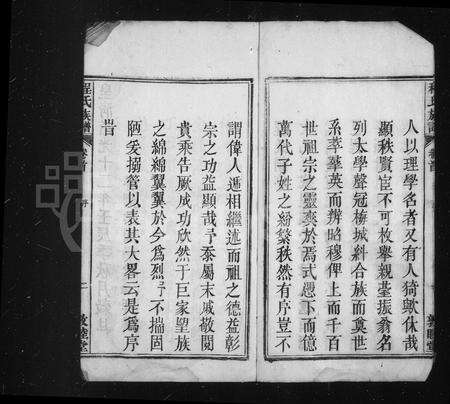 人以理學名者又有人猗歟休哉
顯秩賢宦不可枚舉親臺振翁名
列太學聲冠梅城糾合族而奠世
系萃華英而辨昭穆俾上而千百
世祖宗之靈爽於焉式憑下而億
萬代子姓之紛繁秩然有序豈不
謂偉人遞相繼述而祖之德益彰
宗之功益顯哉予忝屬末戚敬閱
貴乘告厥成功欣然于巨家望族
之綿綿翼翼於今為烈予不揣固
陋妥搦管以表其大畧云是為序
旹
程氏族譜
卷首
序
敦睦堂